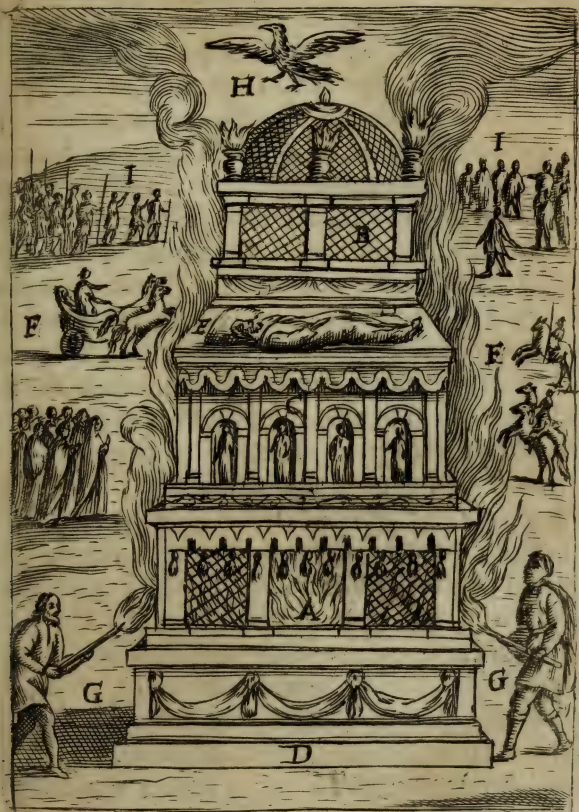 H
I I
B
F E F
A
G G
D